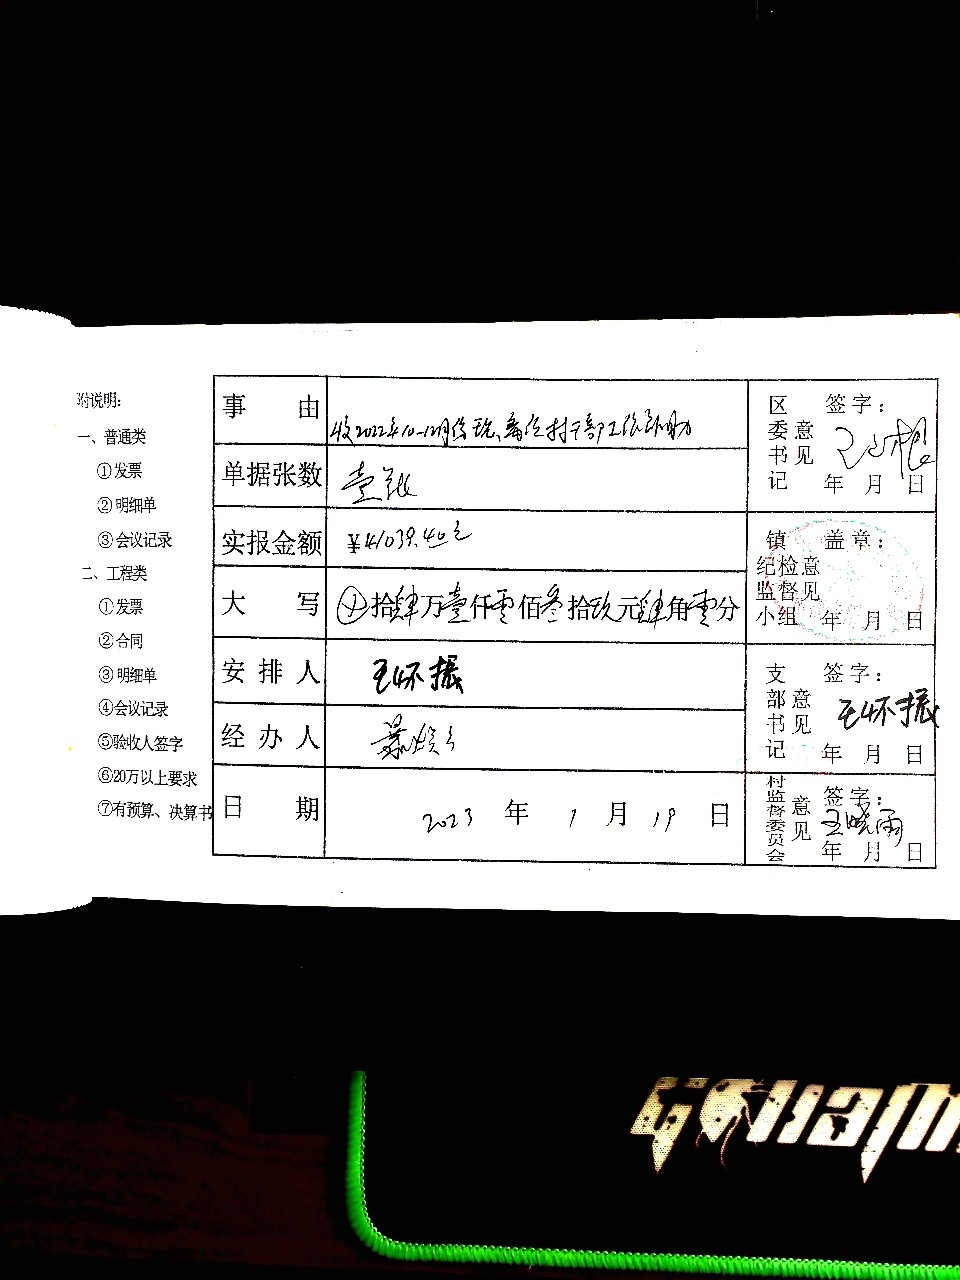 附说明:
一、普通类
①发票
②明细单
③会议记录
二、工程类
①发票
②合同
③明细单
④会议记录
⑤验收人签字
⑥20万以上要求
⑦有预算、决算书
事由 收2022年10-12月份现、离任村干部工资补助
单据张数 壹张
实报金额 ¥41039.40元
大写 ⊕拾肆万壹仟零佰叁拾玖元肆角零分
安排人 王怀振
经办人
日期 2023年1月19日
区委书记意见 签字:
年月日
镇纪检监督小组意见 盖章:
年月日
支部书记意见 签字:
王怀振
年月日
村监督委员会意见 签字:
王晓雨
年月日